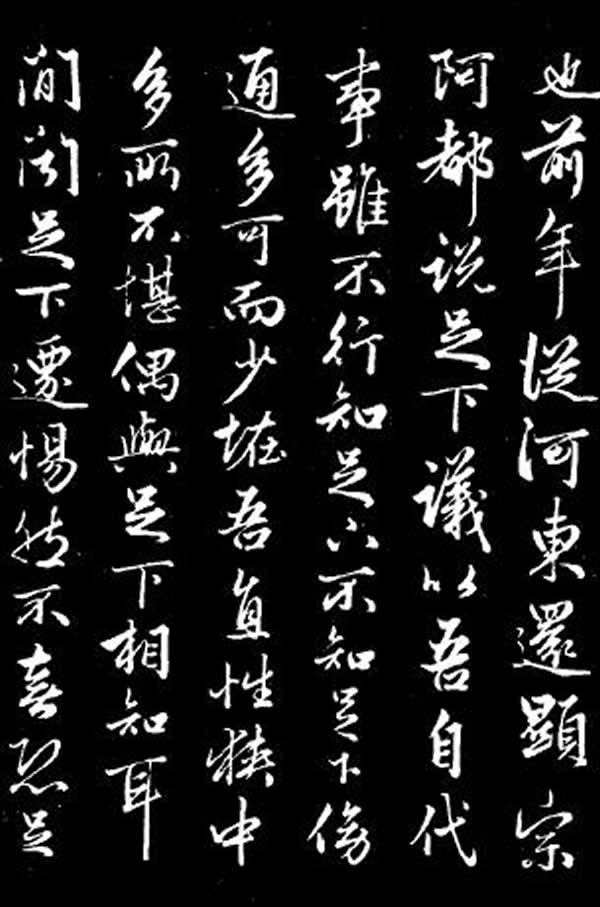 也前年從河東還顯宗
阿都説足下議以吾自代
事雖不行知足下不知足下傍
通多可而少堆吾直性狹中
多所不堪偶與足下相知耳
間聞足下遷惕然不喜恐足